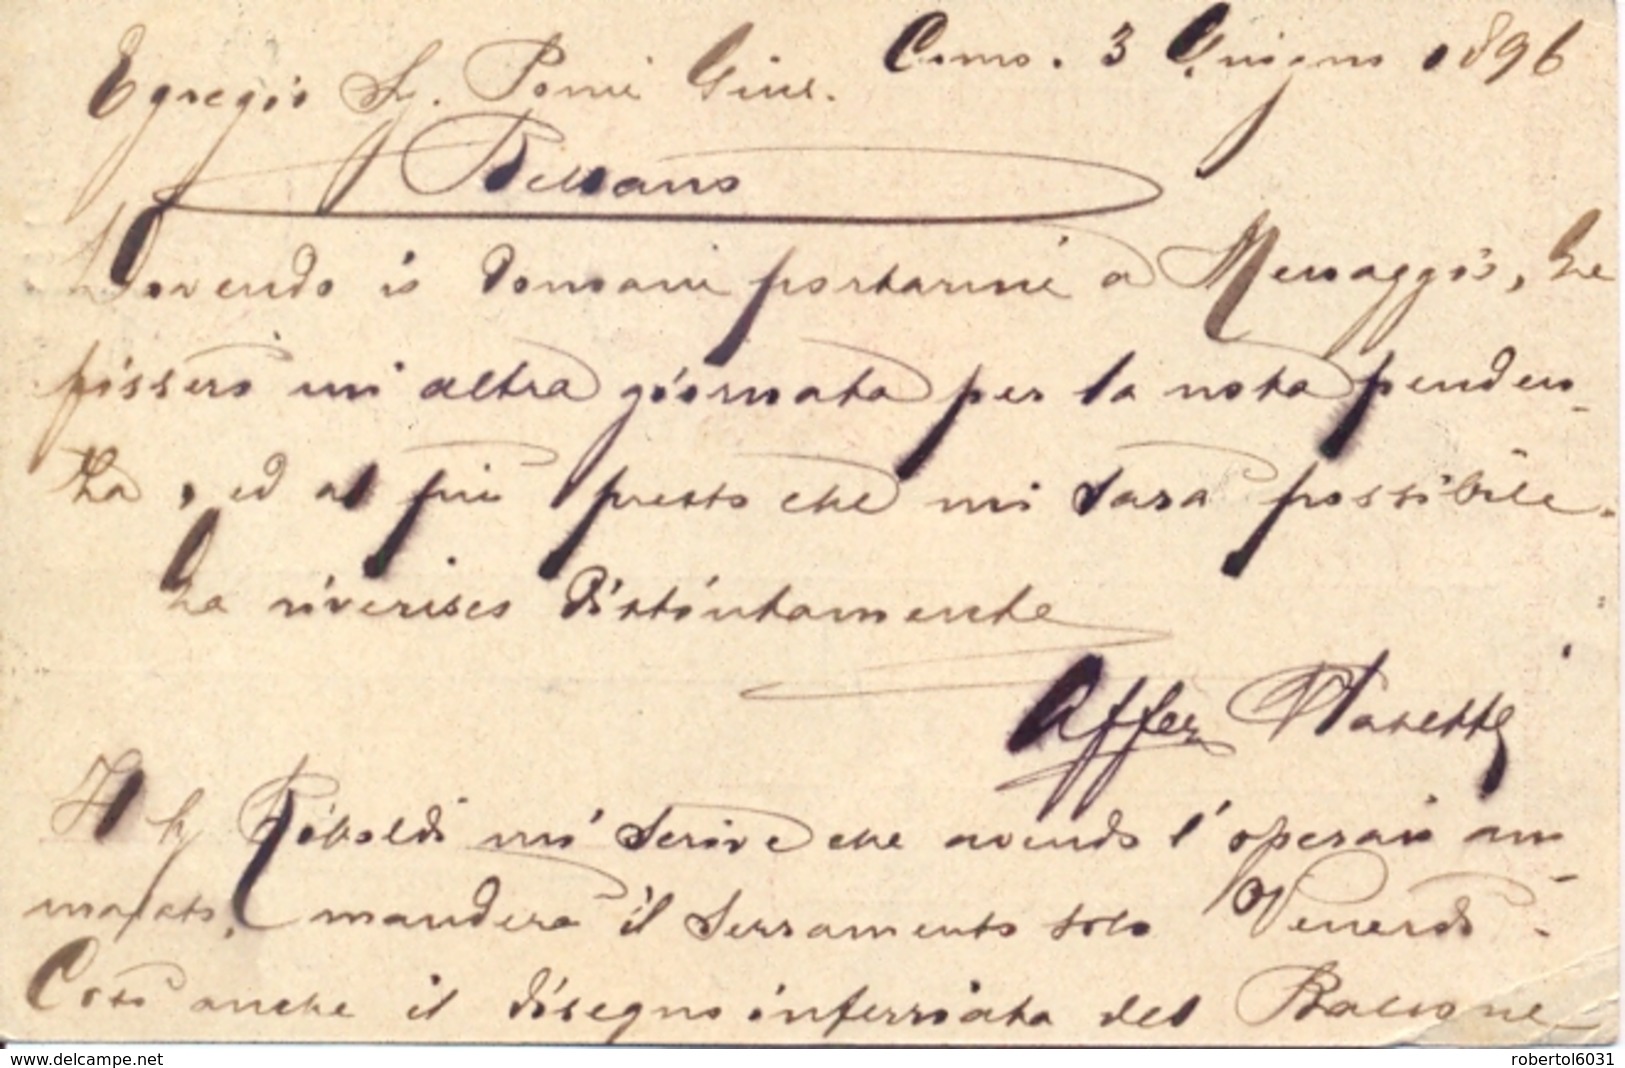 Como. 3 Giugno 1896
Egregio Sg. Poni Gius.
Bellano
Dovendo io domani portarmi a Menaggio, Le
fisserò un altra giornata per la nota penden-
za, ed al più presto che mi sarà possibile.
La riverisco distintamente
Affez
Il Sg Riboldi mi scrive che avendo l'operaio am
malato, manderà il serramento solo Venerdì.
Così anche il disegno inferriata del Balcone
delcampe.net
robertol6031